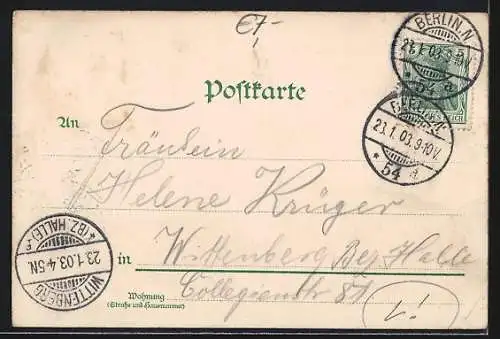 BERLIN.N
23.1.03.9-10V.
*54a
Postkarte
BERLIN.N.
23.1.03.9-10V.
*54a
An
Fräulein
Helene Krüger
in Wittenberg Bez. Halle
Collegienstr 81
Wohnung
(Straße und Hausnummer)
WITTENBERG
23.1.03.4-5N.
*(BZ. HALLE)